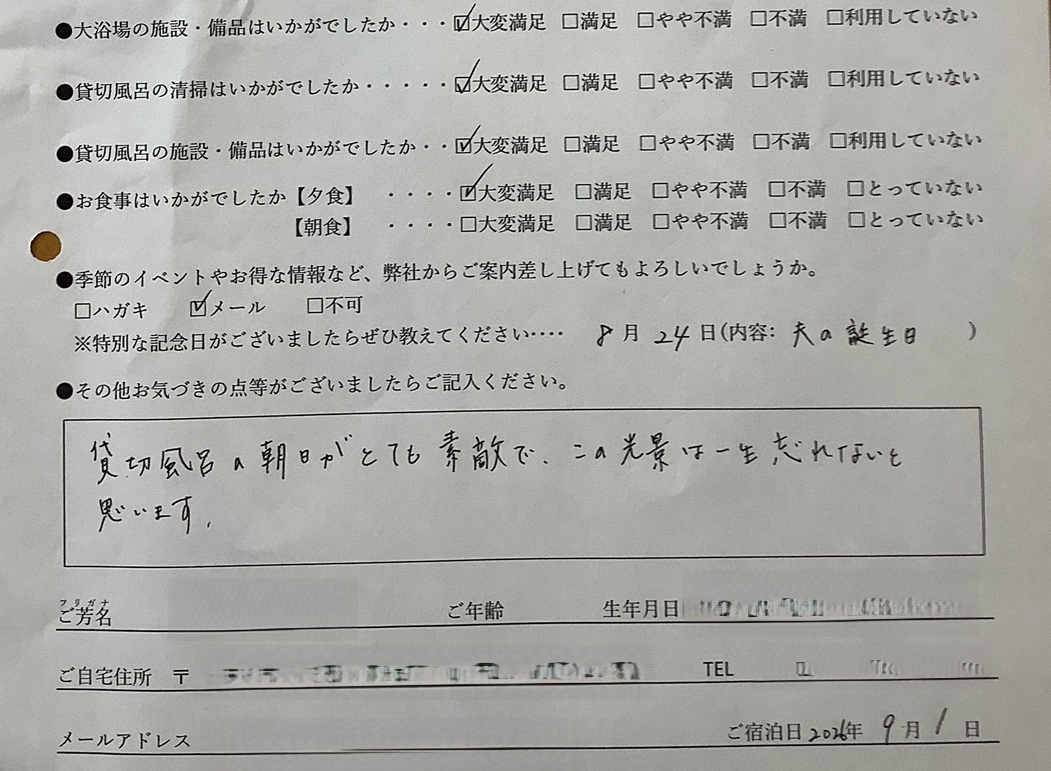 ●大浴場の施設・備品はいかがでしたか・・・☑大変満足 □満足 □やや不満 □不満 □利用していない
●貸切風呂の清掃はいかがでしたか・・・・・☑大変満足 □満足 □やや不満 □不満 □利用していない
●貸切風呂の施設・備品はいかがでしたか・・☑大変満足 □満足 □やや不満 □不満 □利用していない
●お食事はいかがでしたか【夕食】 ・・・・☑大変満足 □満足 □やや不満 □不満 □とっていない
【朝食】 ・・・・□大変満足 □満足 □やや不満 □不満 □とっていない
●季節のイベントやお得な情報など、弊社からご案内差し上げてもよろしいでしょうか。
□ハガキ ☑メール □不可
※特別な記念日がございましたらぜひ教えてください‥‥ 8月 24日(内容: 夫の誕生日 )
●その他お気づきの点等がございましたらご記入ください。
貸切風呂の朝日がとても素敵で、この光景は一生忘れないと
思います。
フリガナ
ご芳名 ご年齢 生年月日
ご自宅住所 〒 TEL
メールアドレス ご宿泊日2026年 9月 1日